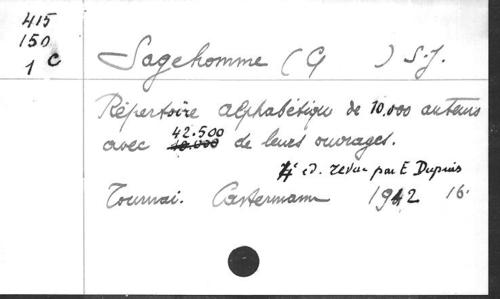 415
150
1 C
Sagehomme (G ) S.J.
Répertoire alphabétique de 10.000 auteurs
avec 42.500 de leurs ouvrages.
éd. revue par E Dupuis
Tournai. Casterman 1942 16.